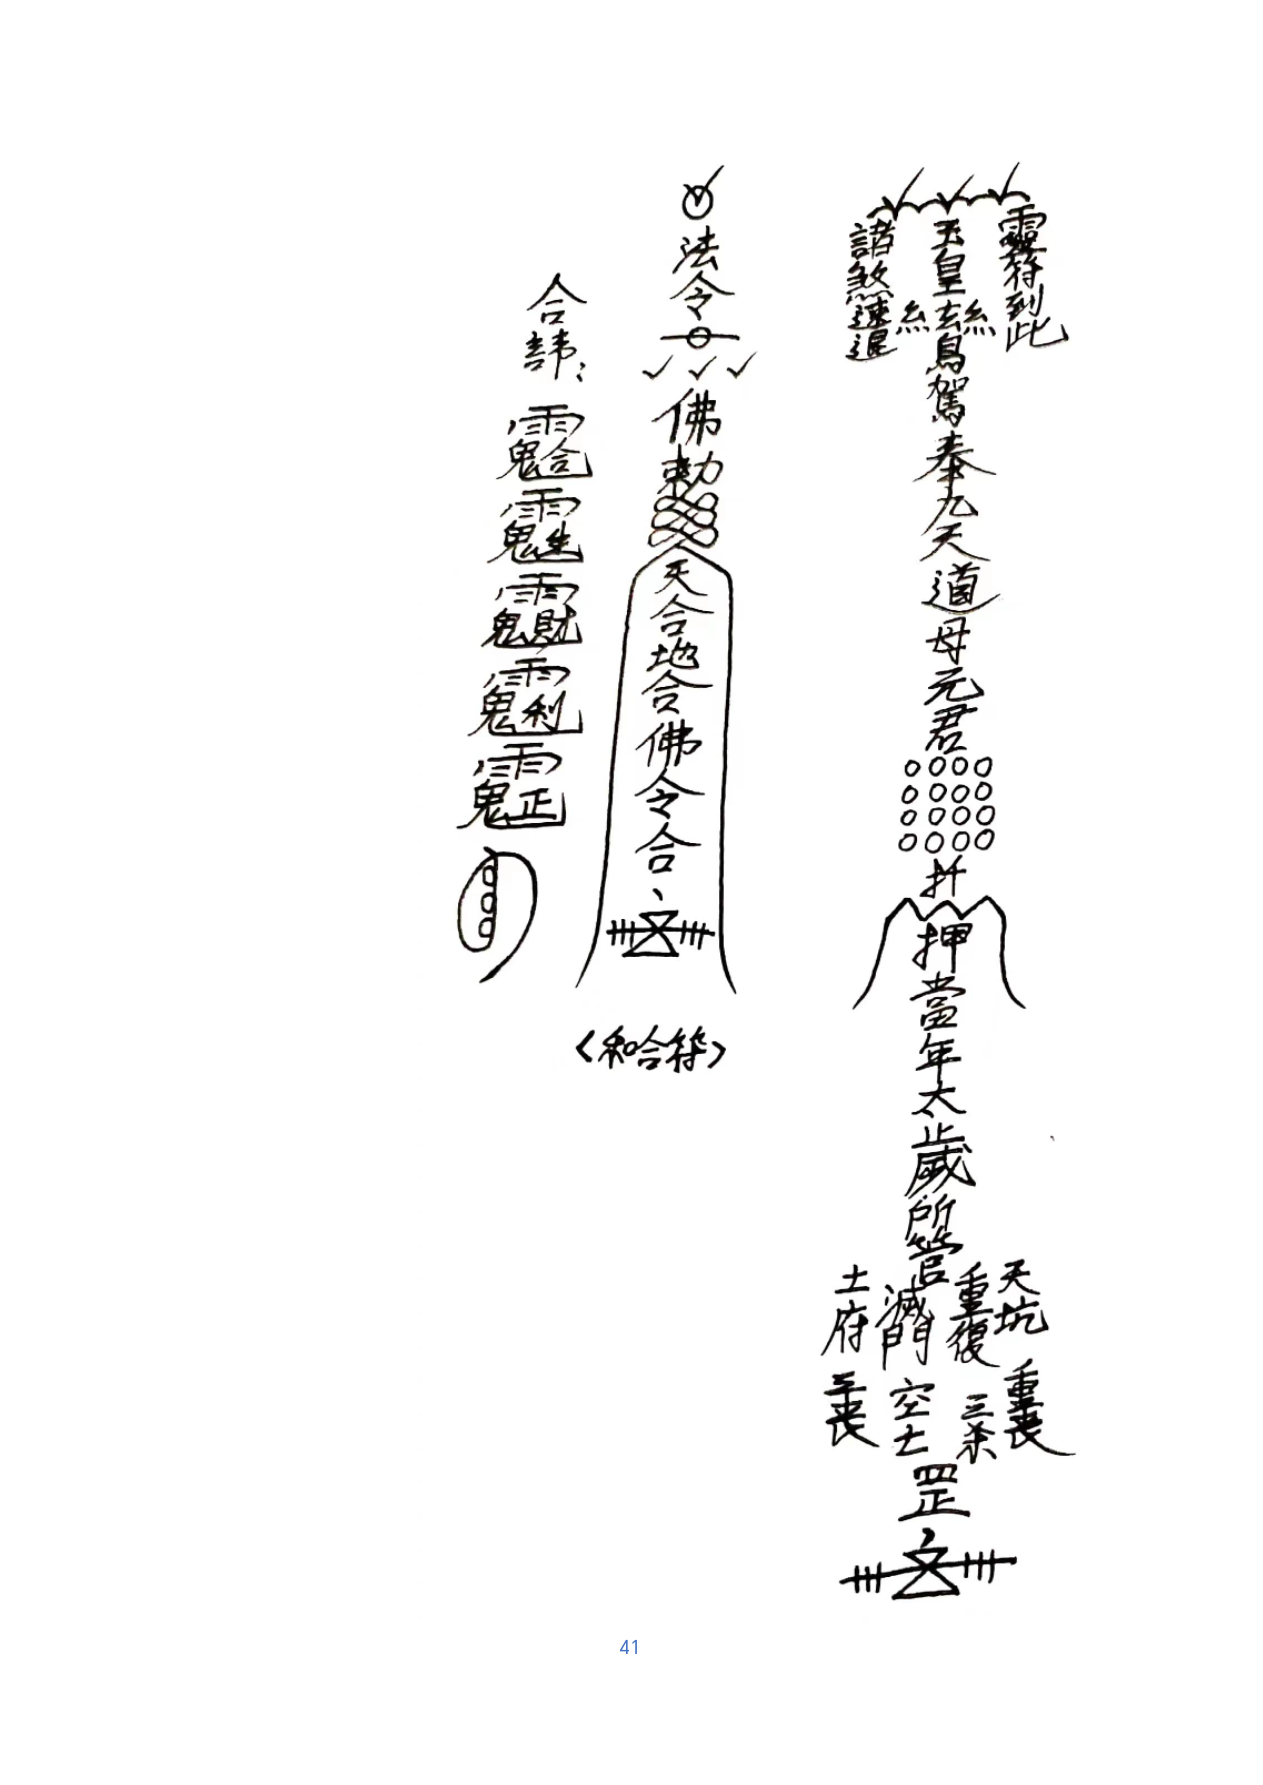 靈符到此
玉皇玄鳥駕奉九天道母元君
諸煞速退
糸
糸
扦
押當年太歲所管
天坑
重復
滅門
土府
重喪
三杀
空亡
罡
法令
佛敕
天合地合佛令合
〈和合符〉
合諱：
41